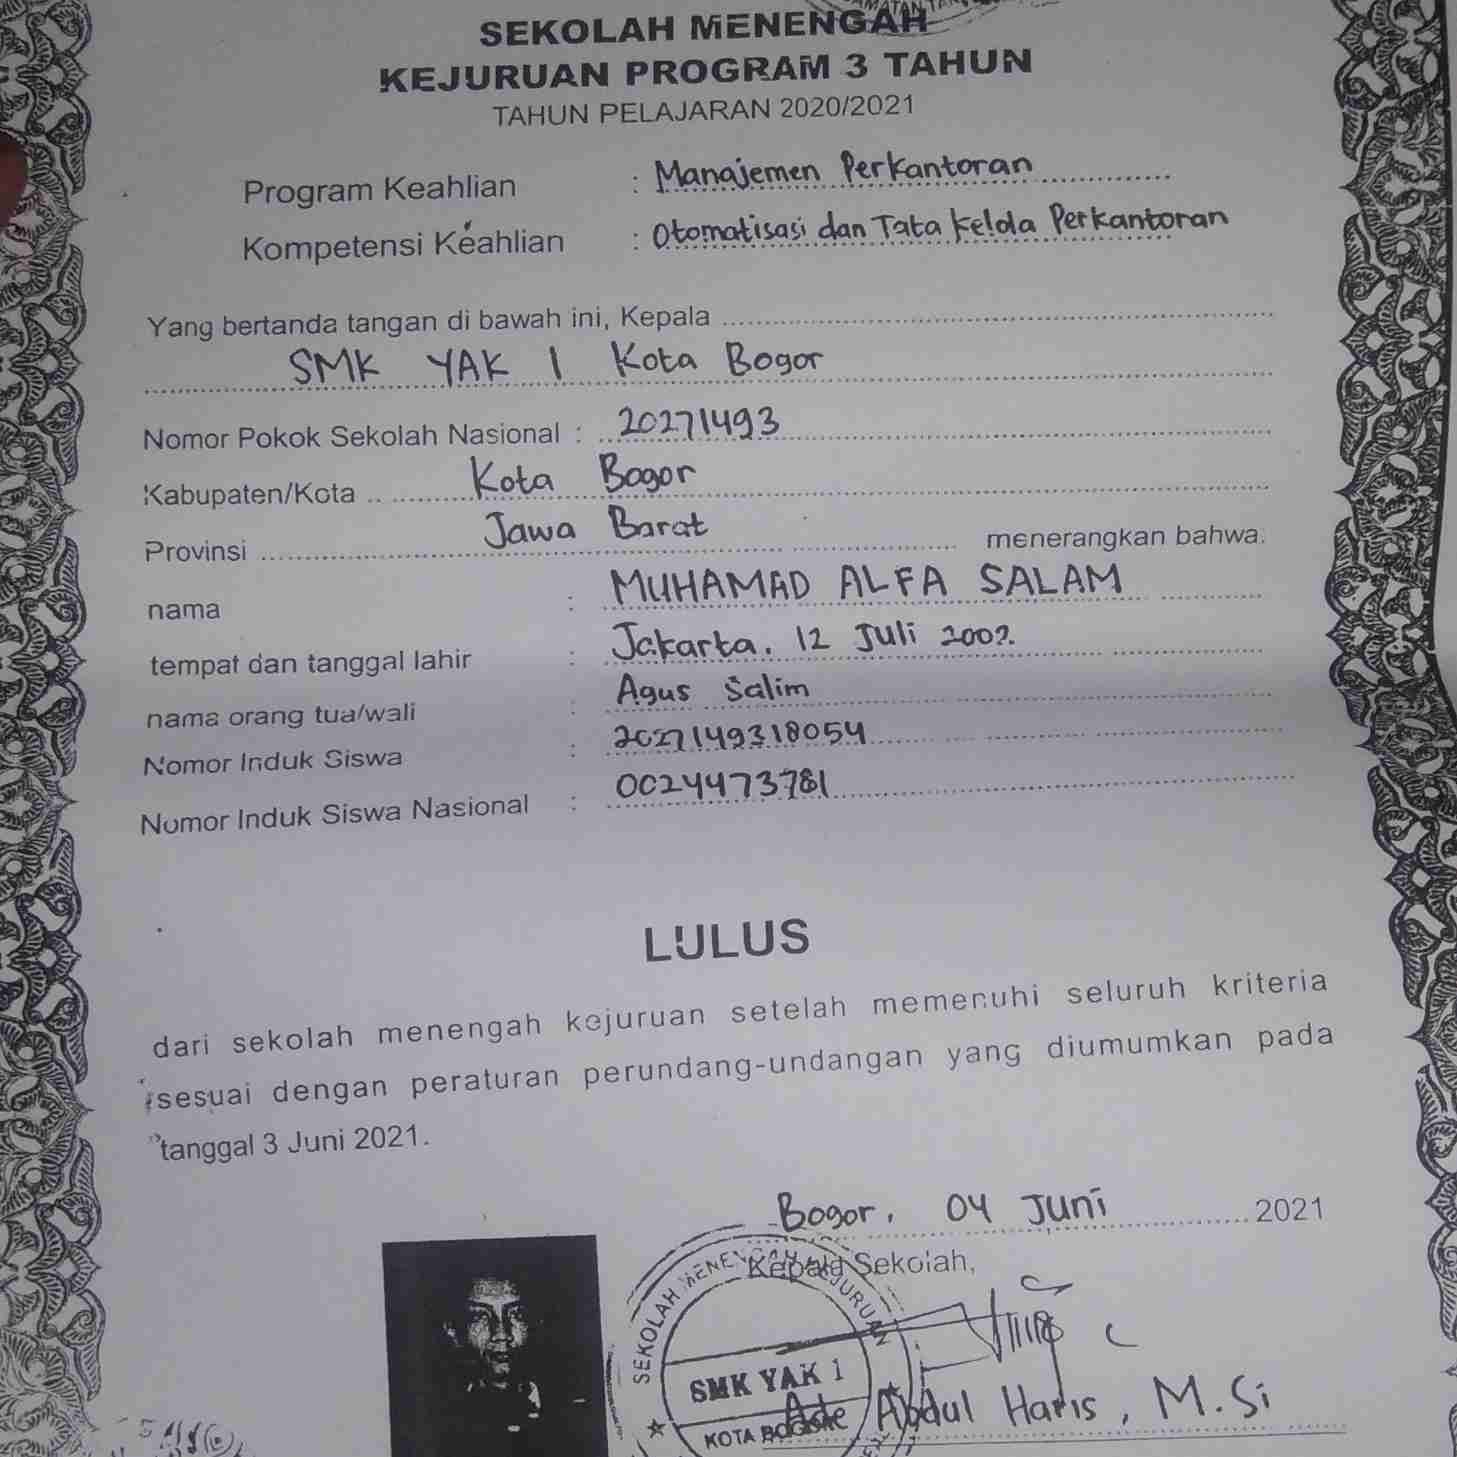 SEKOLAH MENENGAH
KEJURUAN PROGRAM 3 TAHUN
TAHUN PELAJARAN 2020/2021
Program Keahlian : Manajemen Perkantoran
Kompetensi Keahlian : Otomatisasi dan Tata Kelola Perkantoran
Yang bertanda tangan di bawah ini, Kepala
SMK YAK 1 Kota Bogor
Nomor Pokok Sekolah Nasional : 20271493
Kabupaten/Kota Kota Bogor
Provinsi Jawa Barat menerangkan bahwa:
nama : MUHAMAD ALFA SALAM
tempat dan tanggal lahir : Jakarta, 12 Juli 2002
nama orang tua/wali : Agus Salim
Nomor Induk Siswa : 2027149318054
Nomor Induk Siswa Nasional : 0024473781
LULUS
dari sekolah menengah kejuruan setelah memenuhi seluruh kriteria
sesuai dengan peraturan perundang-undangan yang diumumkan pada
tanggal 3 Juni 2021.
Bogor, 04 Juni 2021
Kepala Sekolah,
SEKOLAH MENENGAH KEJURUAN
SMK YAK 1
KOTA BOGOR
Ade Abdul Haris, M.Si